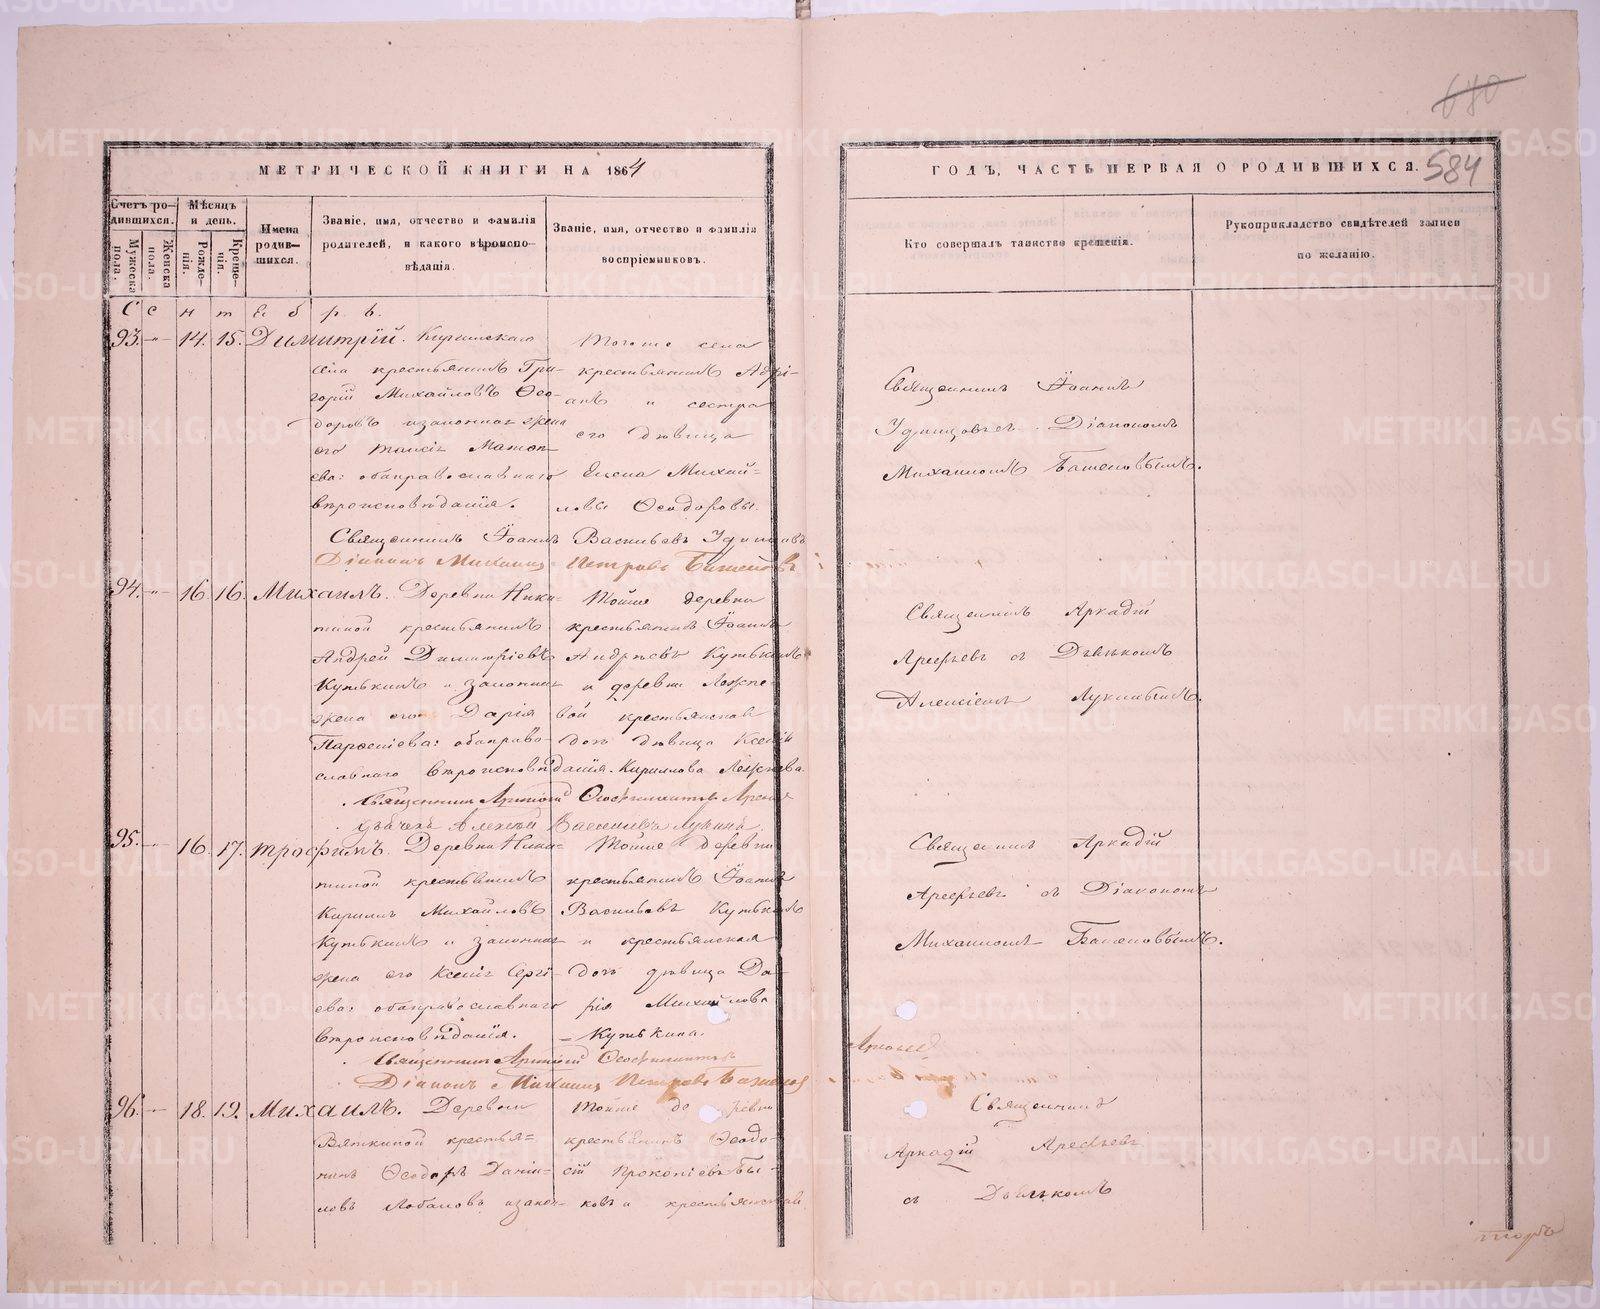 680
МЕТРИЧЕСКОЙ КНИГИ НА 1864
ГОДЪ, ЧАСТЬ ПЕРВАЯ О РОДИВШИХСЯ.
584
Счетъ ро-
дившихся.
Мужеска
пола.
Женска
пола.
Мѣсяцъ
и день.
Рожде-
нія.
Креще-
нія.
Имена
родив-
шихся.
Званіе, имя, отчество и фамилія
родителей, и какого вѣроиспо-
вѣданія.
Званіе, имя, отчество и фамилія
воспріемниковъ.
Кто совершалъ таинство крещенія.
Рукоприкладство свидѣтелей записи
по желанію.
С е н т я б р ь.
93. -"- 14. 15. Димитрій.
села крестьянинъ Гри-
горій Михайловъ Ѳео-
доровъ изаконная жена
его Таисія
ева: обаправославнаго
вѣроисповѣданія.
Тогоже села
крестьянинъ Адрі-
анъ и сестра
его дѣвица
Елена Михай-
ловы Ѳеодоровы.
Священникъ Іоаннъ
Діакономъ
Михаиломъ Баженовымъ.
Священникъ Іоаннъ Васильевъ
Діаконъ Михаилъ Петровъ Баженовъ
94. -"- 16. 16. Михаилъ. Деревни Ники-
тиной крестьянинъ
Андрей Димитріевъ
Кутькинъ и законная
жена его Дарія
Парѳеніева: обаправо-
славнаго вѣроисповѣданія.
Тойже деревни
крестьянинъ Іоаннъ
Андреевъ Кутькинъ
и деревни Лежне-
вой крестьянская
дочь дѣвица Ксенія
Кириллова Лежнева.
Священникъ Аркадій
Арефьевъ съ Дьячкомъ
Алексіемъ Лукинымъ.
Священникъ Аркадій
Дьячекъ Алексѣй Васильевъ Лукинъ.
95. -"- 16. 17. Трофимъ. Деревни Ники-
тиной крестьянинъ
Кириллъ Михайловъ
Кутькинъ и законная
жена его Ксенія Сергі-
ева: обаправославнаго
вѣроисповѣданія.
Тойже деревни
крестьянинъ Іоаннъ
Васильевъ Кутькинъ
и крестьянская
дочь дѣвица Да-
рія Михайлова
Кутькина.
Священникъ Аркадій
Арефьевъ съ Діакономъ
Михаиломъ Баженовымъ.
Священникъ Аркадій
Діаконъ Михаилъ Петровъ Баженовъ
96. -"- 18. 19. Михаилъ. Деревни
Вяткиной крестья-
нинъ Ѳеодоръ Даніи-
ловъ Лобановъ изакон-
Тойже деревни
крестьянинъ Ѳеодо-
сій Прокопіевъ Бы-
ковъ и крестьянская
Священникъ
Аркадій Арефьевъ
съ Дьячкомъ
METRIKI.GASO-URAL.RU